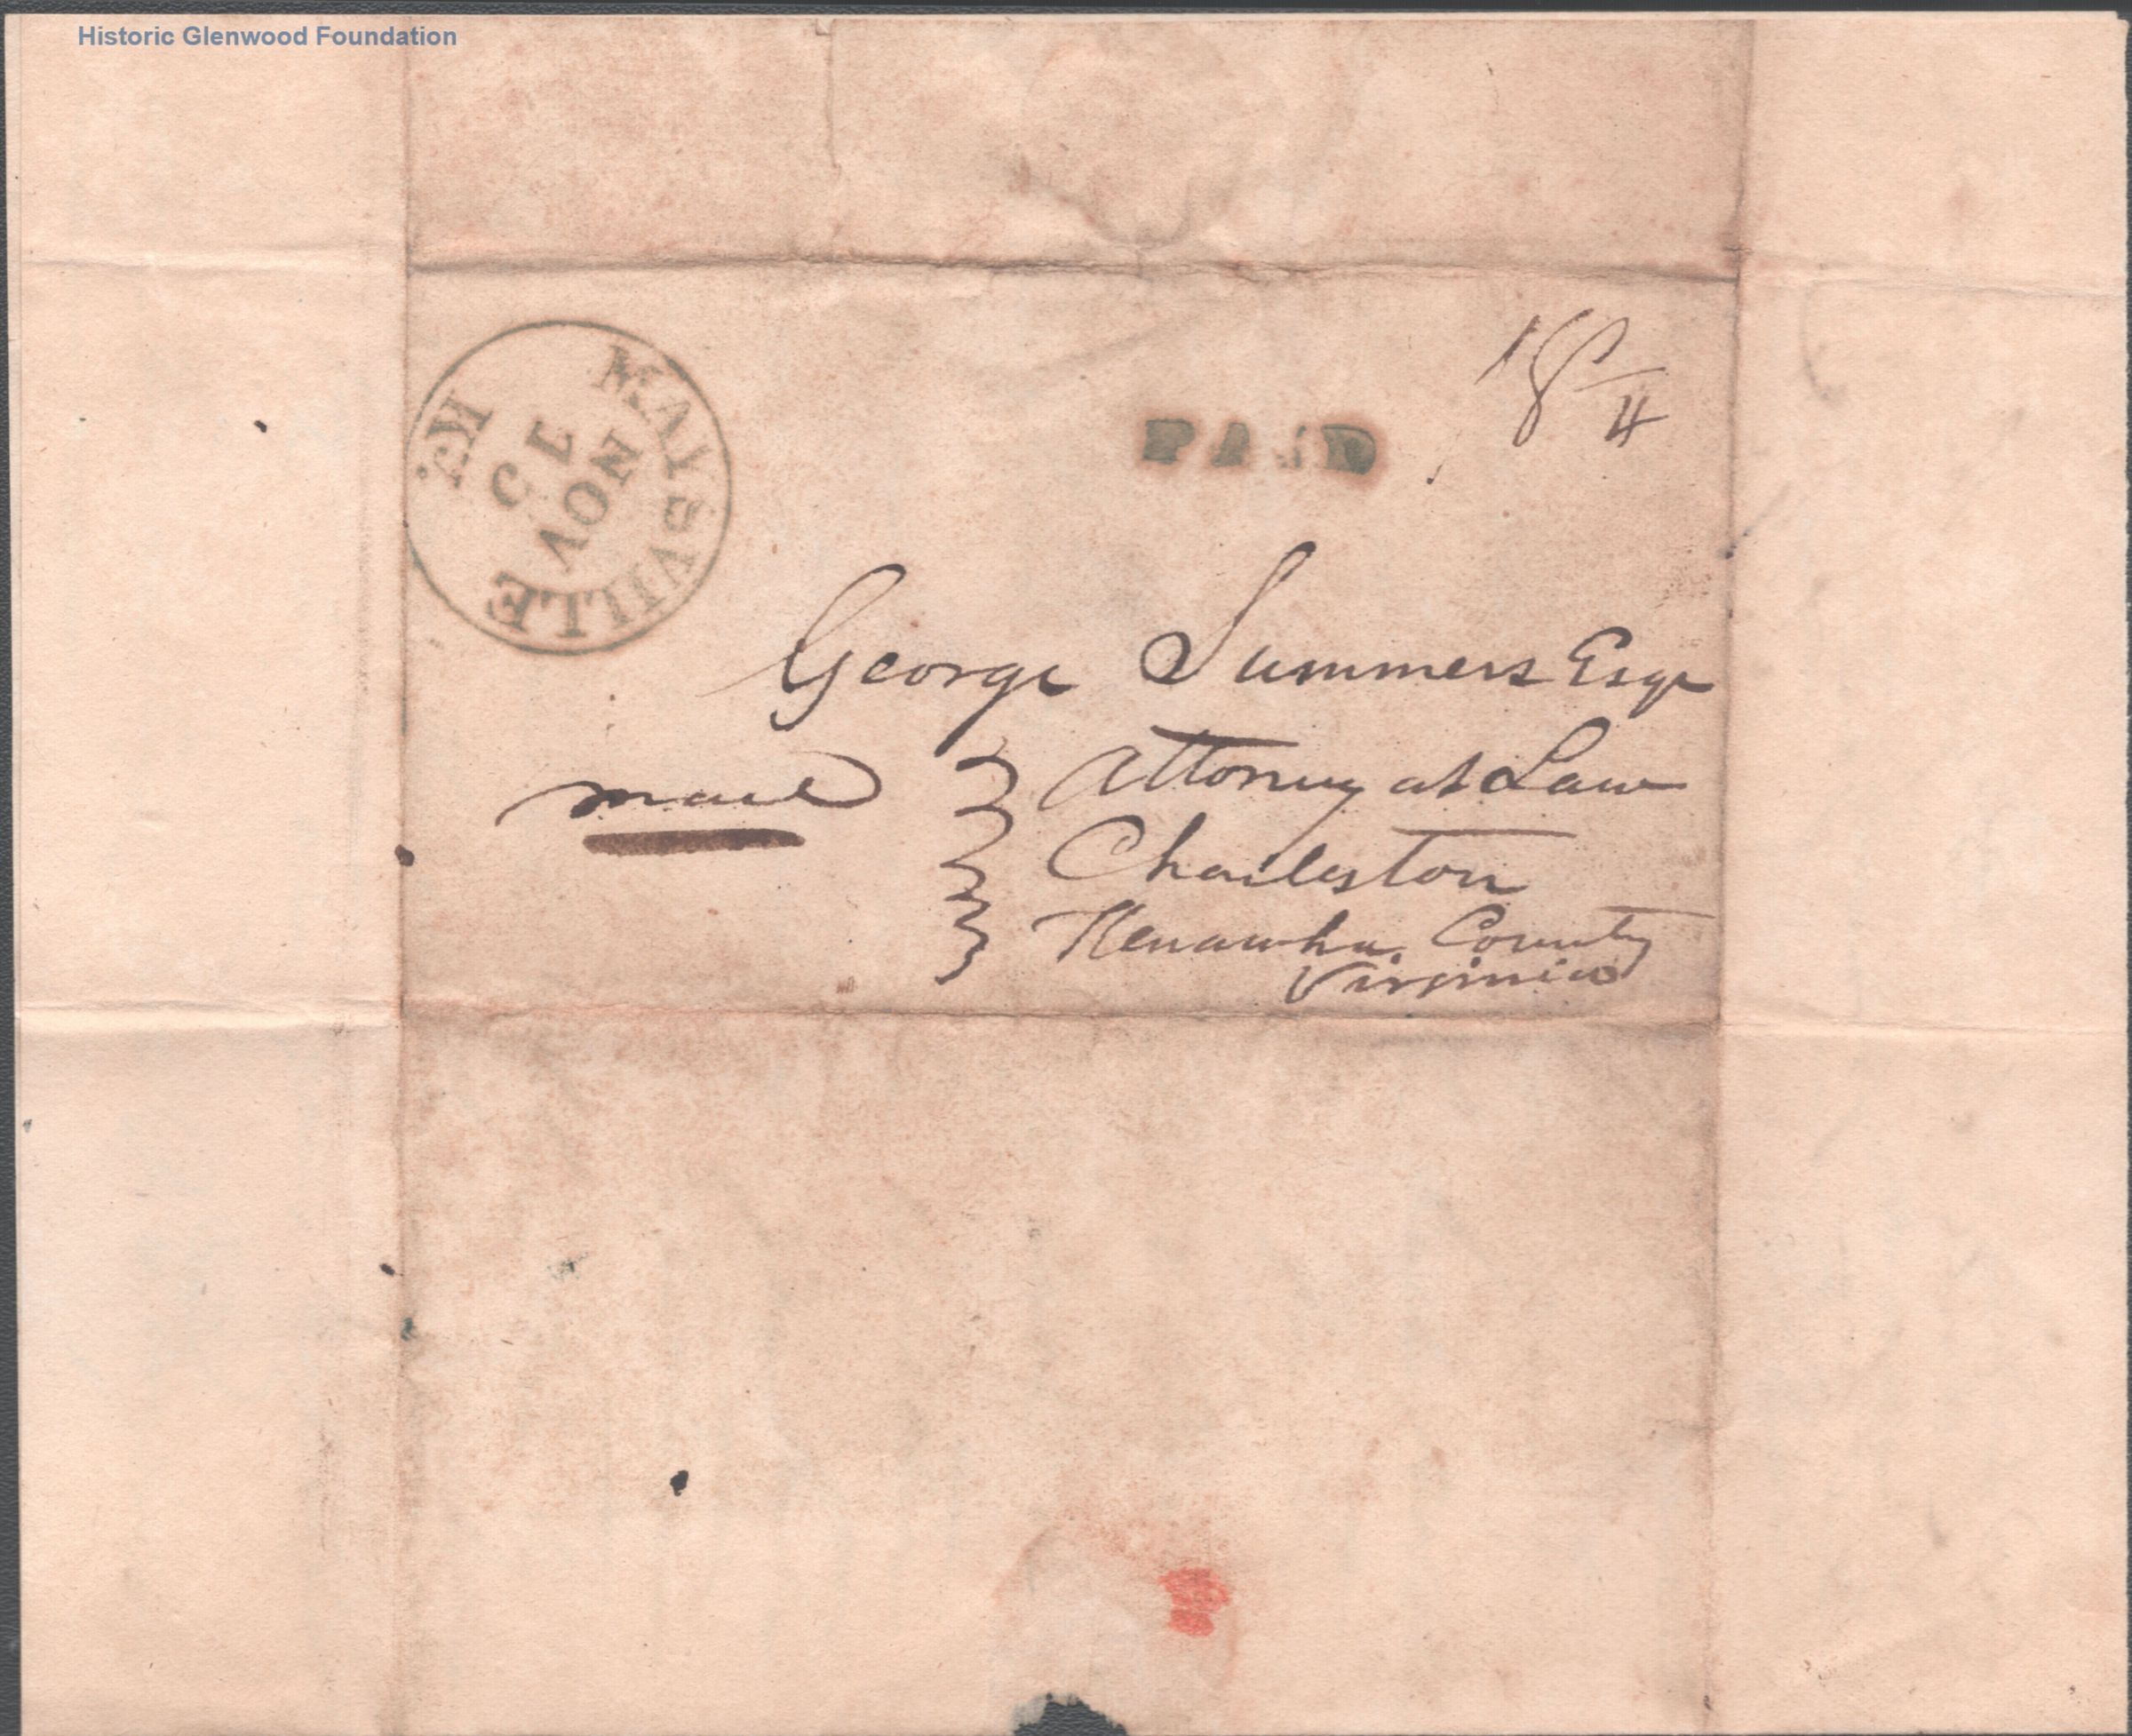 Historic Glenwood Foundation
MAYSVILLE Ky.
NOV
PAID
18 3/4
George Summers Esqr
mail
Attorney at Law
Charleston
Kenawha County
Virginia